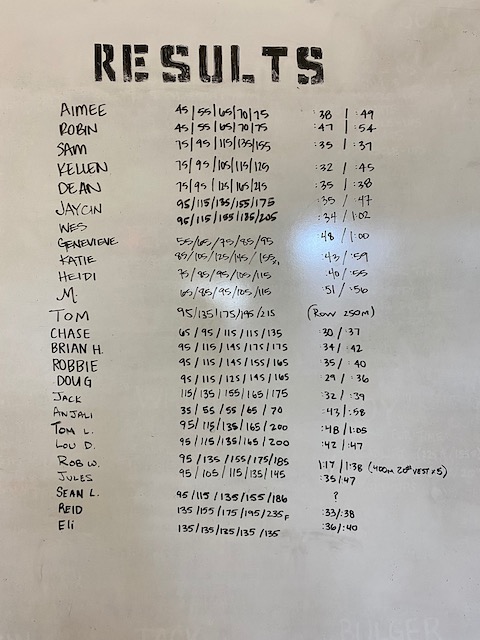 RESULTS
AIMEE 45/55/65/70/75 :38 / :49
ROBIN 45/55/65/70/75 :47 / :54
SAM 75/95/115/135/155 :35 / :37
KELLEN 75/95/105/115/125 :32 / :45
DEAN 75/95/125/165/215 :35 / :38
JAYCIN 95/115/135/155/175 :35 / :47
WES 95/115/155/185/205 :34 / 1:02
GENEVIEVE 55/65/75/85/95 :48 / 1:00
KATIE 85/105/125/145/155 :43 / :59
HEIDI 75/85/95/105/115 :40 / :55
M. 65/85/95/105/115 :51 / :56
TOM 95/135/175/195/215 (ROW 250M)
CHASE 65/95/115/115/135 :30 / :37
BRIAN H. 95/115/145/175/175 :34 / :42
ROBBIE 95/115/145/155/165 :35 / :40
DOUG 95/115/125/145/165 :29 / :36
JACK 115/135/155/165/175 :32 / :39
ANJALI 35/55/55/65/70 :43 / :58
TOM L. 95/115/135/165/200 :48 / 1:05
LOU D. 95/115/135/165/200 :42 / :47
ROB W. 95/135/155/175/185 1:17 / 1:38 (400M 20# VEST x 5)
JULES 95/105/115/135/145 :35/47
SEAN L. 95/115/135/155/186 ?
REID 135/155/175/195/235F :33/:38
Eli 135/135/135/135/135 :36/:40